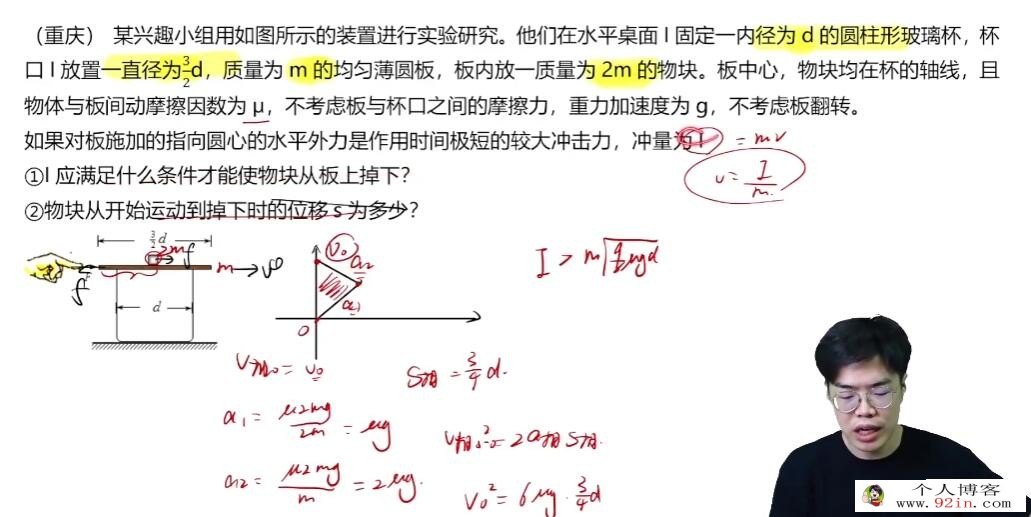 （重庆） 某兴趣小组用如图所示的装置进行实验研究。他们在水平桌面 l 固定一内径为 d 的圆柱形玻璃杯，杯
口 l 放置一直径为3/2d，质量为 m 的均匀薄圆板，板内放一质量为 2m 的物块。板中心，物块均在杯的轴线，且
物体与板间动摩擦因数为 μ，不考虑板与杯口之间的摩擦力，重力加速度为 g，不考虑板翻转。
如果对板施加的指向圆心的水平外力是作用时间极短的较大冲击力，冲量为 I = mv
①I 应满足什么条件才能使物块从板上掉下？
v = I/m
②物块从开始运动到掉下时的位移 s 为多少？
3/2 d
2m f
m → v0
f
d
v0 a2
a1
0
I > m√(9/2 μgd)
v相0 = v0
S相 = 3/4 d.
a1 = μ2mg/2m = μg
v相0²-0 = 2a相S相.
a2 = μ2mg/m = 2μg.
v0² = 6μg · 3/4 d
个人博客
www.92in.com